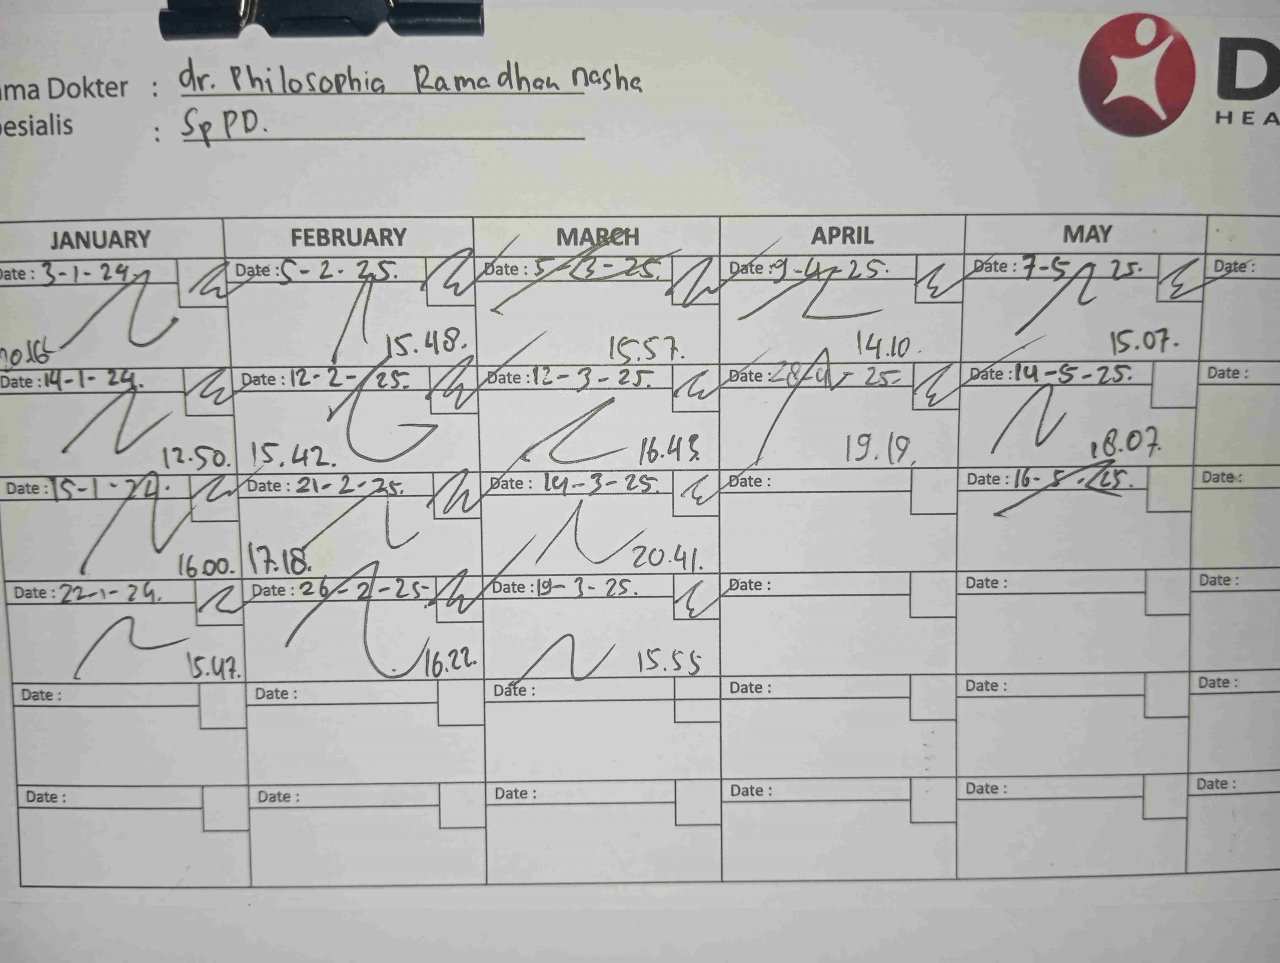 ma Dokter : dr. Philosophia Ramadhan nasha
esialis : SpPD.
D
HEA
JANUARY FEBRUARY MARCH APRIL MAY
Date : 3-1-24. Date : 5-2-25. Date : 5-3-25. Date : 9-4-25. Date : 7-5 25. Date :
15.48. 15.57. 14.10. 15.07.
Date : 14-1-24. Date : 12-2-25. Date : 12-3-25. Date : 25. Date : 14-5-25. Date :
12.50. 15.42. 16.43. 19.19. 18.07.
Date : 15-1-24. Date : 21-2-25. Date : 14-3-25. Date : Date : 16-5-25. Date :
16.00. 17.18. 20.41.
Date : 22-1-24. Date : 26-2-25. Date : 19-3-25. Date : Date : Date :
15.47. 16.22. 15.55
Date : Date : Date : Date : Date : Date :
Date : Date : Date : Date : Date : Date :